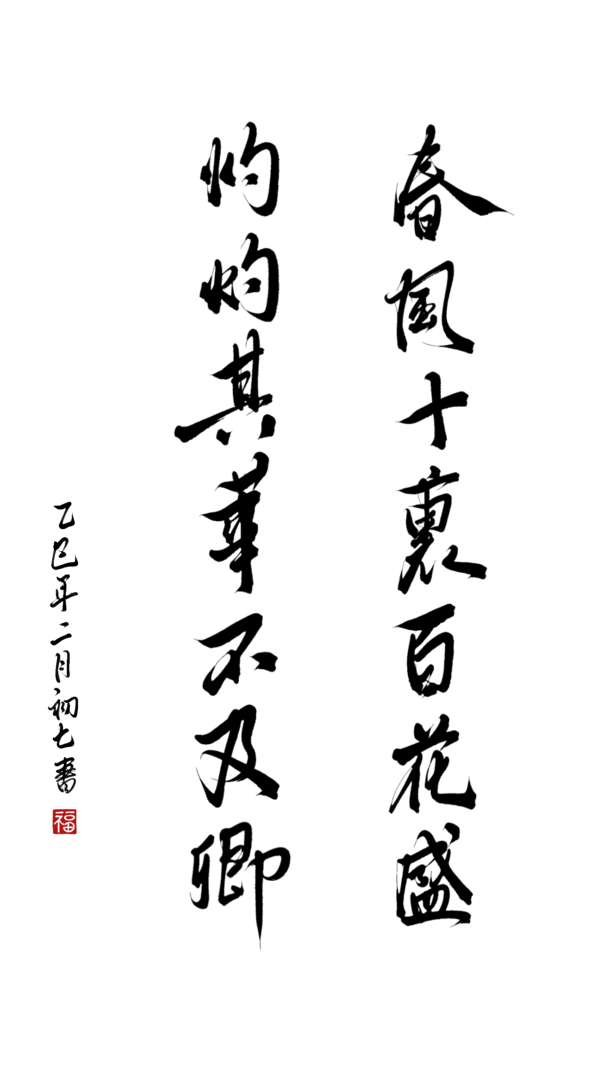 春風十裏百花盛
灼灼其華不及卿
乙巳年二月初七書
福